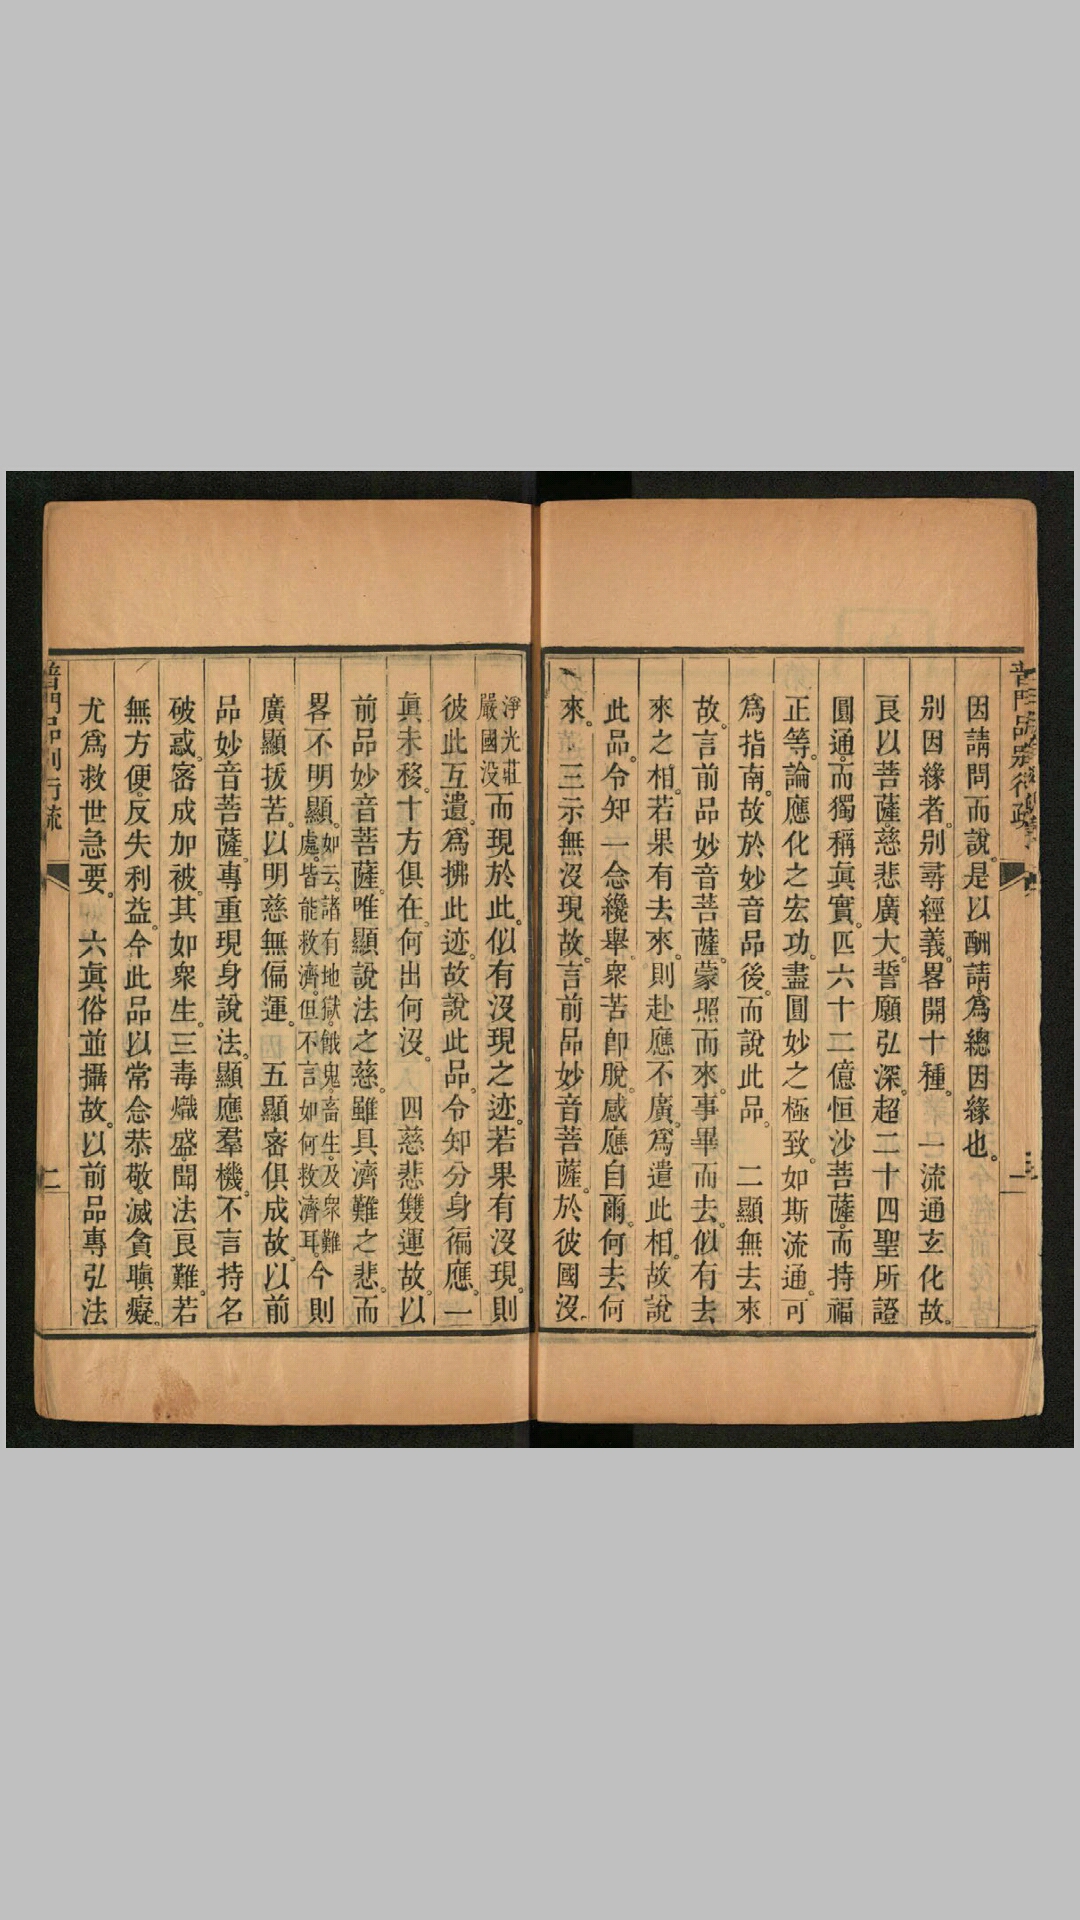 因請問而說。是以酬請。爲總因緣也。
別因緣者。別尋經義。畧開十種。　一流通玄化故。
良以菩薩。慈悲廣大。誓願弘深。超二十四聖所證
圓通。而獨稱眞實。匹六十二億恒沙菩薩。而持福
正等。論應化之宏功。盡圓妙之極致。如斯流通。可
爲指南。故於妙音品後。而說此品。　二顯無去來
故。言前品妙音菩薩。蒙照而來。事畢而去。似有去
來之相。若果有去來。則赴應不廣。爲遣此相。故說
此品。令知一念纔舉。衆苦卽脫。感應自爾。何去何
來。　三示無沒現故。言前品妙音菩薩。於彼國沒。
淨光莊
嚴國沒
而現於此。似有沒現之迹。若果有沒現。則
彼此互遺。爲拂此迹。故說此品。令知分身徧應。一
眞未移。十方俱在。何出何沒。　四慈悲雙運故。以
前品妙音菩薩。唯顯說法之慈。雖具濟難之悲。而
畧不明顯。
如云。諸有地獄。餓鬼。畜生。及衆難
處。皆能救濟。但不言如何救濟耳。
今則
廣顯拔苦。以明慈無偏運。　五顯密俱成故。以前
品妙音菩薩。專重現身說法。顯應羣機。不言持名
破惑。密成加被。其如衆生。三毒熾盛。聞法良難。若
無方便。反失利益。今此品以常念恭敬。滅貪瞋癡。
尤爲救世急要。　六眞俗並攝故。以前品專弘法
普門品別行疏
二